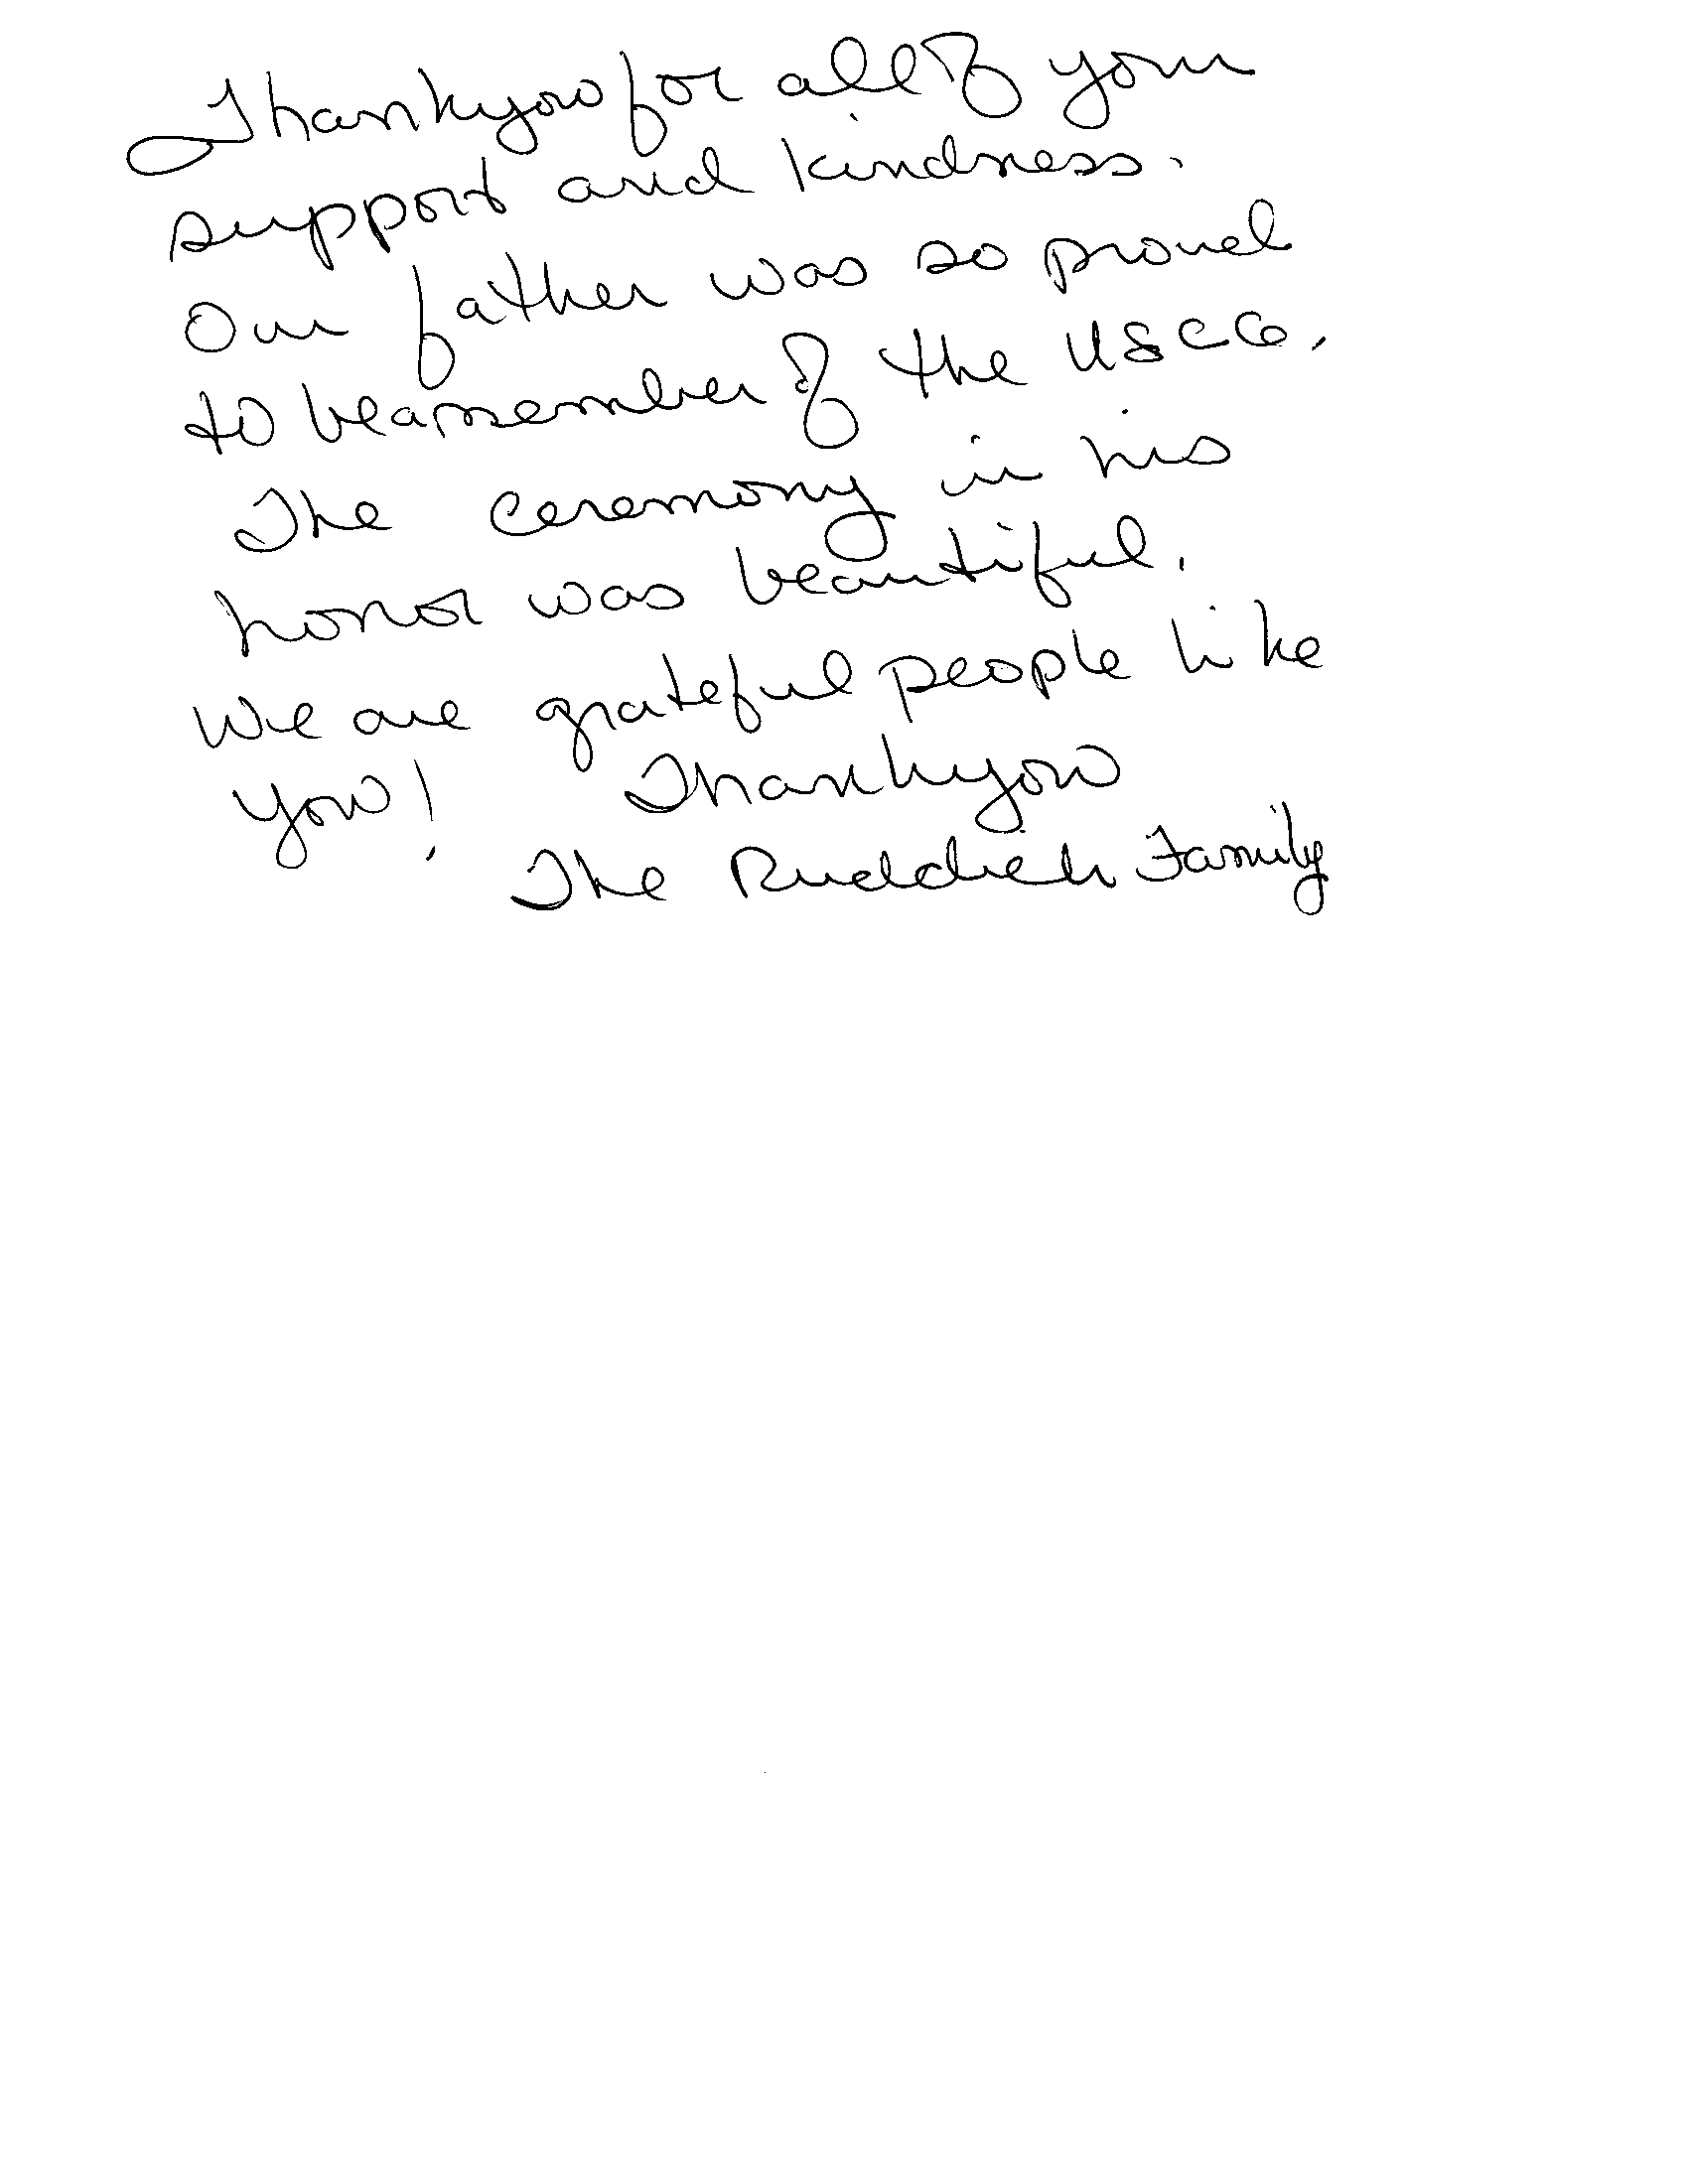 Thankyou for all of your
support and kindness.
Our father was so proud
to be a member of the USCG.
The ceremony in his
honor was beautiful.
We are grateful people like
you! Thankyou
The Ruddich Family